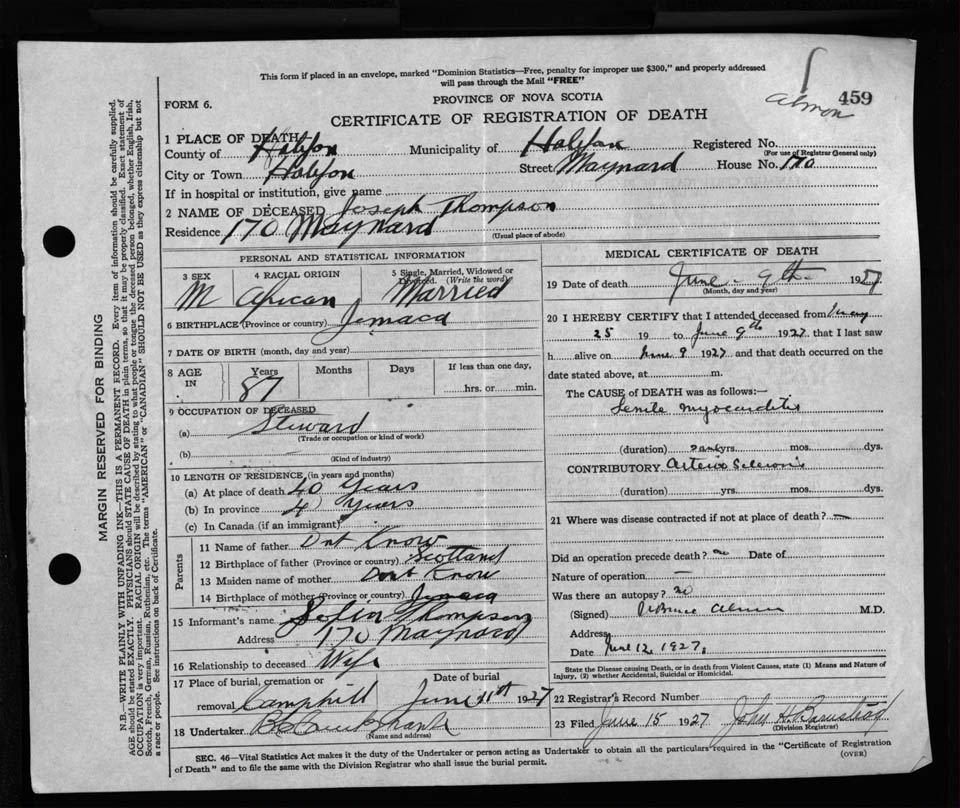 This form if placed in an envelope, marked "Dominion Statistics—Free, penalty for improper use $300," and properly addressed
will pass through the Mail "FREE"
FORM 6.
PROVINCE OF NOVA SCOTIA
459
Almon
CERTIFICATE OF REGISTRATION OF DEATH
1 PLACE OF DEATH
County of Halifax Municipality of Halifax Registered No.
(For use of Registrar General only)
City or Town Halifax Street Maynard House No. 170
If in hospital or institution, give name
2 NAME OF DECEASED Joseph Thompson
Residence 170 Maynard
(Usual place of abode)
PERSONAL AND STATISTICAL INFORMATION
3 SEX 4 RACIAL ORIGIN 5 Single, Married, Widowed or
Divorced. (Write the word)
M African Married
6 BIRTHPLACE (Province or country) Jemaca
7 DATE OF BIRTH (month, day and year)
8 AGE IN Years Months Days If less than one day,
87 hrs. or min.
9 OCCUPATION OF DECEASED
(a) Steward
(Trade or occupation or kind of work)
(b)
(Kind of industry)
10 LENGTH OF RESIDENCE (in years and months)
(a) At place of death 40 Years
(b) In province 4 Years
(c) In Canada (if an immigrant)
Parents
11 Name of father Dnt Know
12 Birthplace of father (Province or country) Scotland
13 Maiden name of mother Dont Know
14 Birthplace of mother (Province or country) Jemaca
15 Informant's name Thompson
Address 170 Maynard
16 Relationship to deceased Wife
17 Place of burial, cremation or Date of burial
removal Camphill June 11th 1927
18 Undertaker
(Name and address)
MEDICAL CERTIFICATE OF DEATH
19 Date of death June 9th 1927
(Month, day and year)
20 I HEREBY CERTIFY that I attended deceased from
25 19 to June 9th 1927, that I last saw
h alive on June 9 1927 and that death occurred on the
date stated above, at m.
The CAUSE OF DEATH was as follows:—
Senile myocarditis
(duration) yrs. mos. dys.
CONTRIBUTORY Arterio Sclerosis
(duration) yrs. mos. dys.
21 Where was disease contracted if not at place of death?
Did an operation precede death? no Date of
Nature of operation —
Was there an autopsy? no
(Signed) M.D.
Address
Date June 12, 1927,
State the Disease causing Death, or in death from Violent Causes, state (1) Means and Nature of
Injury, (2) whether Accidental, Suicidal or Homicidal.
22 Registrar's Record Number
23 Filed June 15 1927 John H.
(Division Registrar)
SEC. 46—Vital Statistics Act makes it the duty of the Undertaker or person acting as Undertaker to obtain all the particulars required in the "Certificate of Registration
of Death" and to file the same with the Division Registrar who shall issue the burial permit.
(OVER)
MARGIN RESERVED FOR BINDING
N.B.—WRITE PLAINLY WITH UNFADING INK—THIS IS A PERMANENT RECORD. Every item of information should be carefully supplied.
AGE should be stated EXACTLY. PHYSICIANS should STATE CAUSE OF DEATH in plain terms, so that it may be properly classified. Exact statement of
OCCUPATION is very important. RACIAL ORIGIN will be described by stating to what people or tongue the deceased person belonged, whether English, Irish,
Scotch, French, German, Russian, Ruthenian, etc. The terms "AMERICAN" or "CANADIAN" SHOULD NOT BE USED as they express citizenship but not
a race or people. See instructions on back of Certificate.